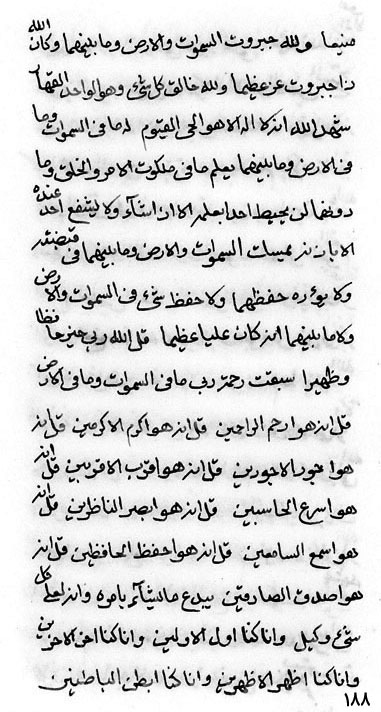 منيعا ولله جبروت السموات والارض وما بينهما وكان الله
ذا جبروت عز عظيما ولله خالق كل شيء وهو الواحد القهار
شهد الله انه لا اله الا هو الحي القيوم له ما في السموات وما
في الارض وما بينهما يعلم ما في ملكوت الامر والخلق وما
دونهما لن يحيط احدا بعلمه الا ان اشاء ولا يشفع احد عنده
الا باذنه يمسك السموات والارض وما بينهما في قبضته
ولا يؤده حفظهما ولا حفظ شيء في السموات والارض
ولا ما بينهما انه كان عليا عظيما قل الله ربي خير حافظا
وظهيرا سبقت رحمة ربي ما في السموات وما في الارض
قل انه هو ارحم الراحمين قل انه هو اكرم الاكرمين قل انه
هو اجود الاجودين قل انه هو اقرب الاقربين قل انه
هو اسرع الحاسبين قل انه هو ابصر الناظرين قل انه
هو اسمع السامعين قل انه هو احفظ الحافظين قل انه
هو اصدق الصادقين يبدع ما يشاء بامره وانه لعلى كل
شيء وكيل وانا كنا اول الاولين وانا كنا اخر الاخرين
وانا كنا اظهر الاظهرين وانا كنا ابطن الباطنين
١٨٨